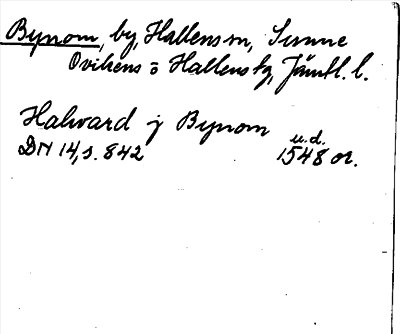 Bynom, by, Hallens sn, Sunne
Ovikens o Hallens tg, Jämtl. l.
Halward j Bynom
u.d.
DN 14, s. 842 1548 or.